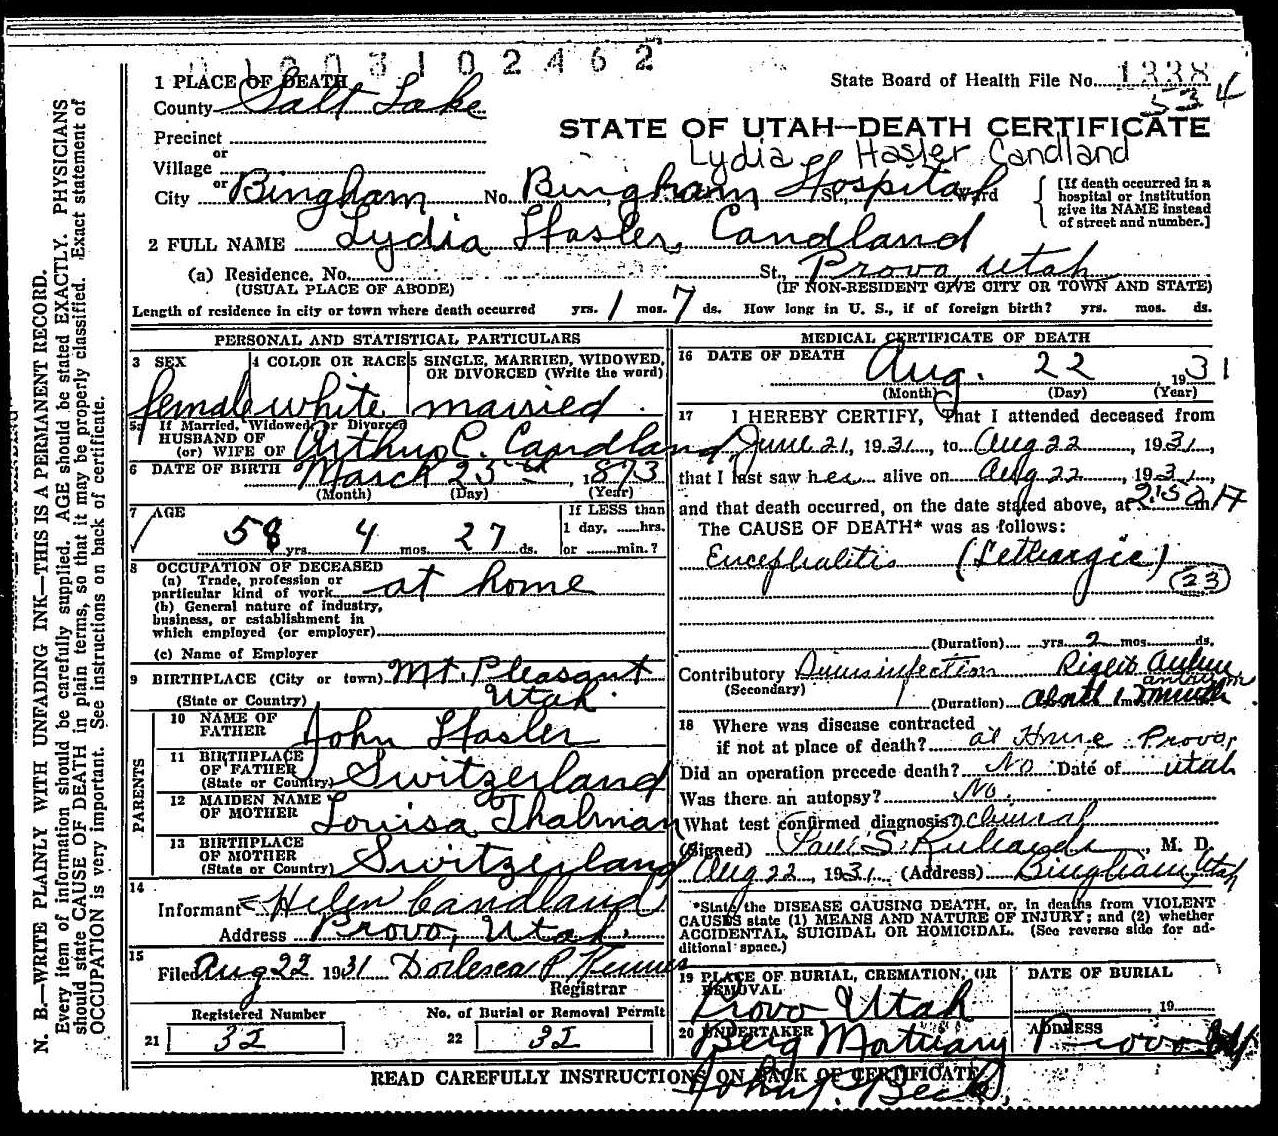 0 1 0 0 3 1 0 2 4 6 2
1 PLACE OF DEATH
State Board of Health File No. 1338
534
County Salt Lake
STATE OF UTAH—DEATH CERTIFICATE
Precinct
Lydia Hasler Candland
or
Village
or
City Bingham No. Bingham Hospital St., Ward
[If death occurred in a hospital or institution give its NAME instead of street and number.]
2 FULL NAME Lydia Hasler Candland
(a) Residence. No. St., Provo, Utah
(USUAL PLACE OF ABODE) (IF NON-RESIDENT GIVE CITY OR TOWN AND STATE)
Length of residence in city or town where death occurred yrs. 1 mos. 7 ds. How long in U. S., if of foreign birth? yrs. mos. ds.
PERSONAL AND STATISTICAL PARTICULARS
3 SEX 4 COLOR OR RACE 5 SINGLE, MARRIED, WIDOWED, OR DIVORCED (Write the word)
female white married
5a If Married, Widowed, or Divorced
HUSBAND OF
(or) WIFE OF Arthur C. Candland
6 DATE OF BIRTH March 25 1873
(Month) (Day) (Year)
7 AGE
58 yrs. 4 mos. 27 ds.
If LESS than
1 day, hrs.
or min.?
8 OCCUPATION OF DECEASED
(a) Trade, profession or
particular kind of work at home
(b) General nature of industry,
business, or establishment in
which employed (or employer)
(c) Name of Employer
9 BIRTHPLACE (City or town) Mt. Pleasant
(State or Country) Utah.
PARENTS
10 NAME OF
FATHER John Hasler
11 BIRTHPLACE
OF FATHER
(State or Country) Switzerland
12 MAIDEN NAME
OF MOTHER Louisa Thalman
13 BIRTHPLACE
OF MOTHER
(State or Country) Switzerland
14
Informant Helen Candland
Address Provo, Utah.
15
Filed Aug 22 1931
Registrar
Registered Number No. of Burial or Removal Permit
21 32 22 32
MEDICAL CERTIFICATE OF DEATH
16 DATE OF DEATH Aug. 22 1931
(Month) (Day) (Year)
17 I HEREBY CERTIFY, That I attended deceased from
June 21, 1931, to Aug 22, 1931,
that I last saw her alive on Aug 22, 1931,
and that death occurred, on the date stated above, at 2:50 m
The CAUSE OF DEATH* was as follows:
Encephalitis (Lethargic)
(23)
(Duration) yrs. 2 mos. ds.
Contributory Right
(Secondary)
(Duration) about 12 month
18 Where was disease contracted
if not at place of death? at Home Provo,
Did an operation precede death? No Date of Utah
Was there an autopsy? No.
What test confirmed diagnosis? Clinical
(Signed) Paul S. Richards, M. D.
Aug 22, 1931. (Address) Bingham, Utah
*State the DISEASE CAUSING DEATH, or, in deaths from VIOLENT
CAUSES state (1) MEANS AND NATURE OF INJURY; and (2) whether
ACCIDENTAL, SUICIDAL OR HOMICIDAL. (See reverse side for additional space.)
19 PLACE OF BURIAL, CREMATION, OR
REMOVAL
Provo Utah
DATE OF BURIAL
19
20 UNDERTAKER
Berg Mortuary
ADDRESS
Provo
READ CAREFULLY INSTRUCTIONS ON BACK OF CERTIFICATE
John J. Beck,
N. B.—WRITE PLAINLY WITH UNFADING INK—THIS IS A PERMANENT RECORD.
Every item of information should be carefully supplied. AGE should be stated EXACTLY. PHYSICIANS
should state CAUSE OF DEATH in plain terms, so that it may be properly classified. Exact statement of
OCCUPATION is very important. See instructions on back of certificate.